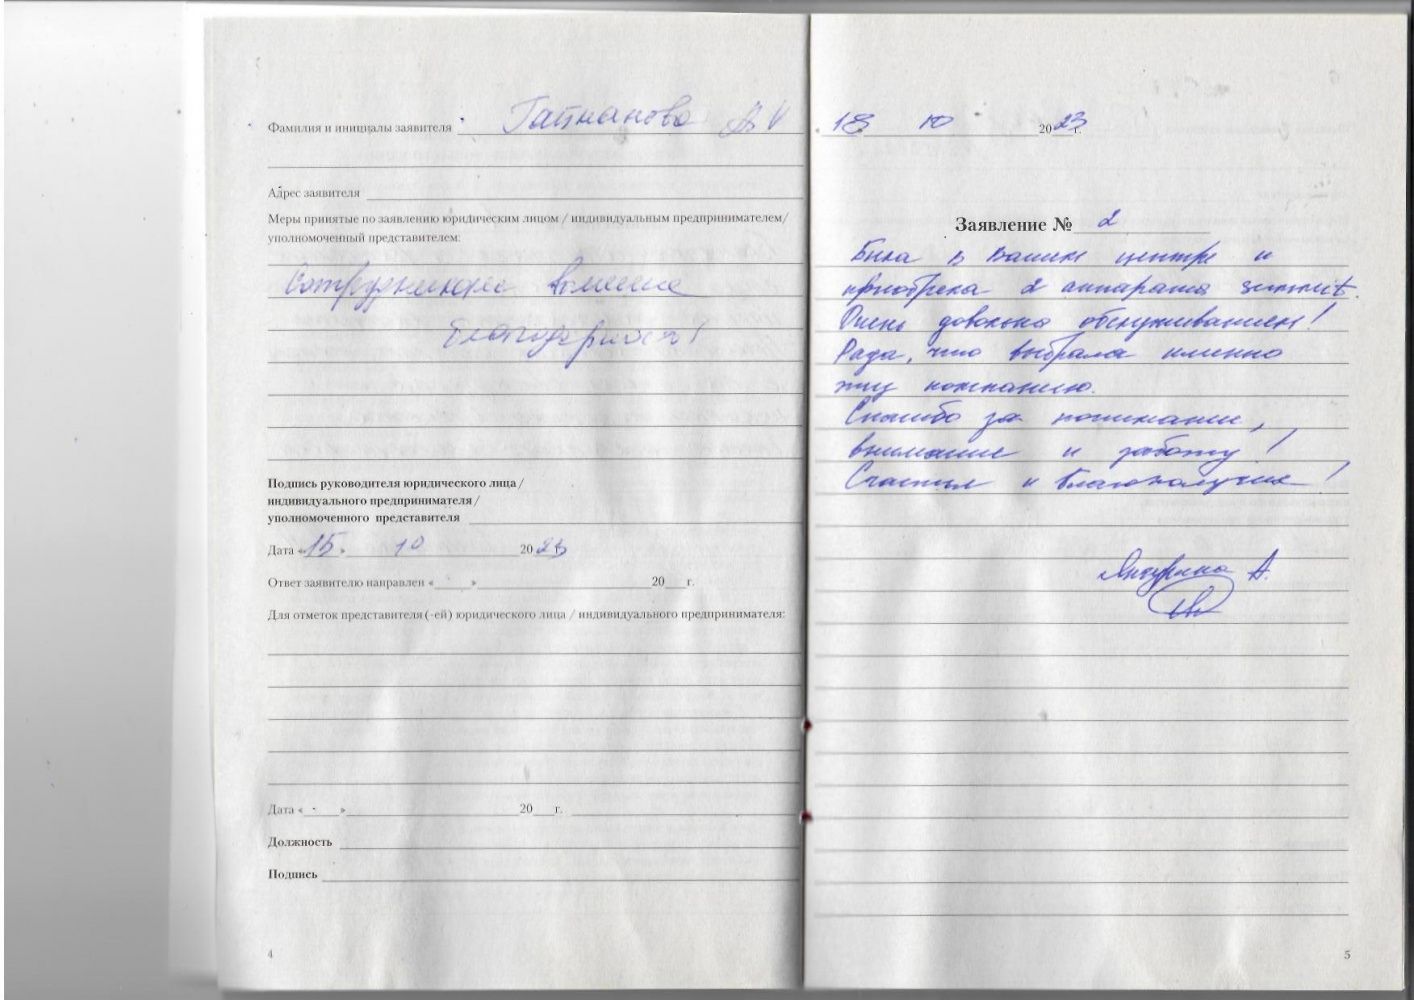 Фамилия и инициалы заявителя Гайнанова
Адрес заявителя
Меры принятые по заявлению юридическим лицом / индивидуальным предпринимателем/
уполномоченный представителем:
Сотрудникам вынесена
благодарность!
Подпись руководителя юридического лица/
индивидуального предпринимателя/
уполномоченного представителя
Дата «15» 10 2023
Ответ заявителю направлен « » 20 г.
Для отметок представителя(-ей) юридического лица / индивидуального предпринимателя:
Дата « » 20 г.
Должность
Подпись
4
18 10 2023 г.
Заявление № 2
Была в вашем центре и
приобрела 2 аппарата summit.
Очень довольна обслуживанием!
Рада, что выбрала именно
эту компанию.
Спасибо за понимание,
внимание и заботу!
Счастья и благополучия!
А.
5